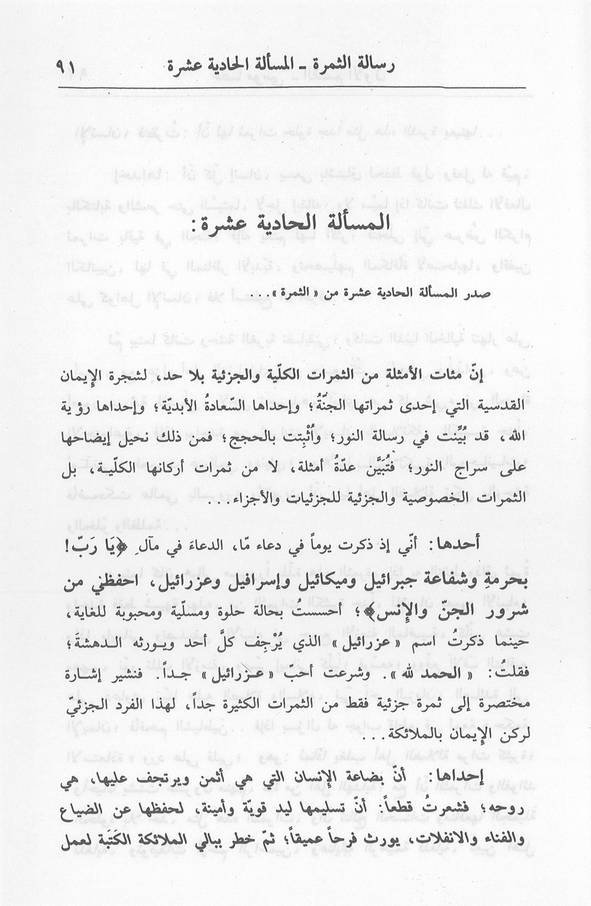 رسالة الثمرة ـ المسألة الحادية عشرة ٩١
المسألة الحادية عشرة:
صدر المسألة الحادية عشرة من «الثمرة»...
إنّ مئات الأمثلة من الثمرات الكلّية والجزئية بلا حد، لشجرة الإيمان
القدسية التي إحدى ثمراتها الجنّةُ؛ وإحداها السّعادةُ الأبديّة؛ وإحداها رؤية
الله، قد بُيِّنت في رسالة النور؛ وأُثْبِتت بالحجج؛ فمن ذلك نحيل إيضاحها
على سراج النور؛ فتُبَيَّن عدّةُ أمثلة، لا من ثمرات أركانها الكلّيـة، بل
الثمرات الخصوصية والجزئية للجزئيات والأجزاء...
أحدها: أنّي إذ ذكرت يوماً في دعاء مّا، الدعاءَ في مآلِ ﴿يَا رَبّ!
بحرمةِ وشفاعة جبرائيل وميكائيل وإسرافيل وعزرائيل، احفظني من
شرور الجنّ والإنس﴾؛ أحسستُ بحالة حلوة ومسلّية ومحبوبة للغاية،
حينما ذكرتُ اسم «عزرائيل» الذي يُرْجِف كلَّ أحد ويـورثه الـدهشةَ؛
فقلتُ: «الحمد لله». وشرعت أحبّ «عـزرائيل» جـدأ. فنشير إشـارة
مختصرة إلى ثمرة جزئية فقط من الثمرات الكثيرة جداً، لهذا الفرد الجزئيّ
لركن الإيمان بالملائكة...
إحداها: أنّ بضاعة الإنسان التي هي أثمن ويرتجف عليها، هي
روحه؛ فشعرتُ قطعاً: أنّ تسليمها ليد قويّة وأمينة، لحفظها عن الضياع
والفناء والانفلات، يورث فرحاً عميقاً؛ ثمّ خطر ببالي الملائكة الكَتَبة لعمل